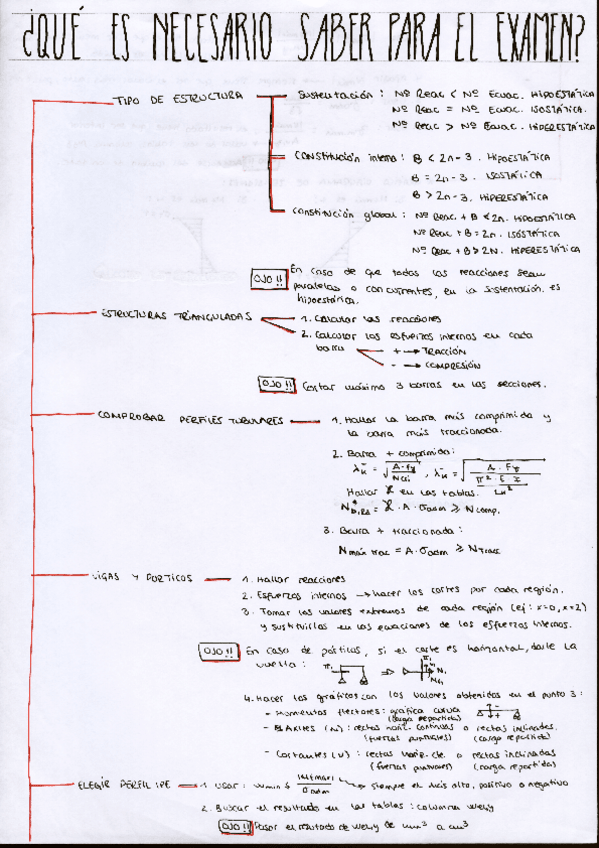 ¿QUÉ ES NECESARIO SABER PARA EL EXAMEN?
TIPO DE ESTRUCTURA
Sustentación: Nº Reac < Nº Ecuac. HIPOESTÁTICA
Nº Reac = Nº Ecuac. ISOSTÁTICA.
Nº Reac > Nº Ecuac. HIPERESTÁTICA
Constitución interna: B < 2n-3. HIPOESTÁTICA
B = 2n-3. ISOSTÁTICA
B > 2n-3. HIPERESTÁTICA
Constitución global: Nº Reac. + B < 2n. HIPOESTÁTICA
Nº Reac + B = 2n. ISOSTÁTICA
Nº Reac + B > 2N. HIPERESTÁTICA
OJO!! En caso de que todas las reacciones sean
paralelas o concurrentes, en la sustentación es
hipoestática.
ESTRUCTURAS TRIANGULADAS
1. Calcular las reacciones
2. Calcular los esfuerzos internos en cada
barra
+ → TRACCIÓN
- → COMPRESIÓN
OJO!! Cortar máximo 3 barras en las secciones.
COMPROBAR PERFILES TUBULARES
1. Hallar la barra más comprimida y
la barra más traccionada.
2. Barra + comprimida:
λ̄k = √(A·Fy / Ncri), λ̄k = √(A·Fy / (π²·E·I / Lk²))
Hallar χ en las tablas.
Nb,Rd = χ · A · σadm ≥ Ncomp.
3. Barra + traccionada:
Nmáx trac = A · σadm ≥ Ntrac
VIGAS Y PORTICOS
1. Hallar reacciones
2. Esfuerzos internos → hacer los cortes por cada región.
3. Tomar los valores extremos de cada región (ej: x=0, x=2)
y sustituirlos en las ecuaciones de los esfuerzos internos.
OJO!! En caso de pórticos, si el corte es horizontal, darle la
vuelta:
4. Hacer los gráficos con los valores obtenidos en el punto 3:
- Momentos flectores: gráfica curva
(carga repartida)
- Axiles (N): rectas horiz. continuas o rectas inclinadas.
(fuerzas puntuales) (carga repartida)
- Cortantes (V): rectas horiz. cte. o rectas inclinadas
(fuerzas puntuales) (carga repartida)
ELEGIR PERFIL IPE
1. Usar: Wmin ≥ |Mfmax| / σadm → siempre el más alto, positivo o negativo
2. Buscar el resultado en las tablas: columna Wely
OJO!! Pasar el resultado de Wely de mm³ a cm³